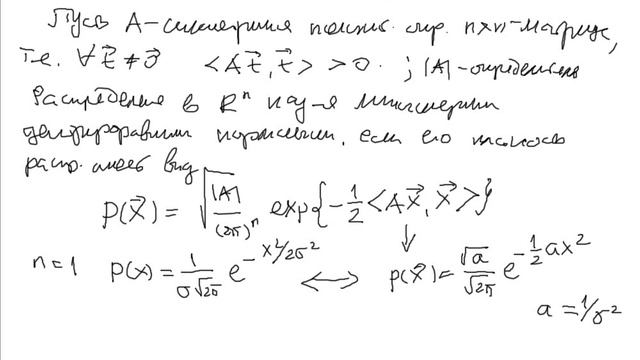 Пусть A-симметричн. полож. опр. n×n-матрица,
т.е. ∀ t⃗ ≠ 0⃗ <At⃗, t⃗> > 0. ; |A|-определитель
Распределение в Rⁿ наз-я многомерным
центрированным нормальным, если его плотность
распр. имеет вид
p(x⃗) = √(|A|/(2π)ⁿ) exp{-1/2 <Ax⃗, x⃗>}
n=1 p(x) = 1/(σ√2π) e^(-x²/2σ²) ⟷ p(x⃗) = √a/√2π e^(-1/2 ax²)
a = 1/σ²